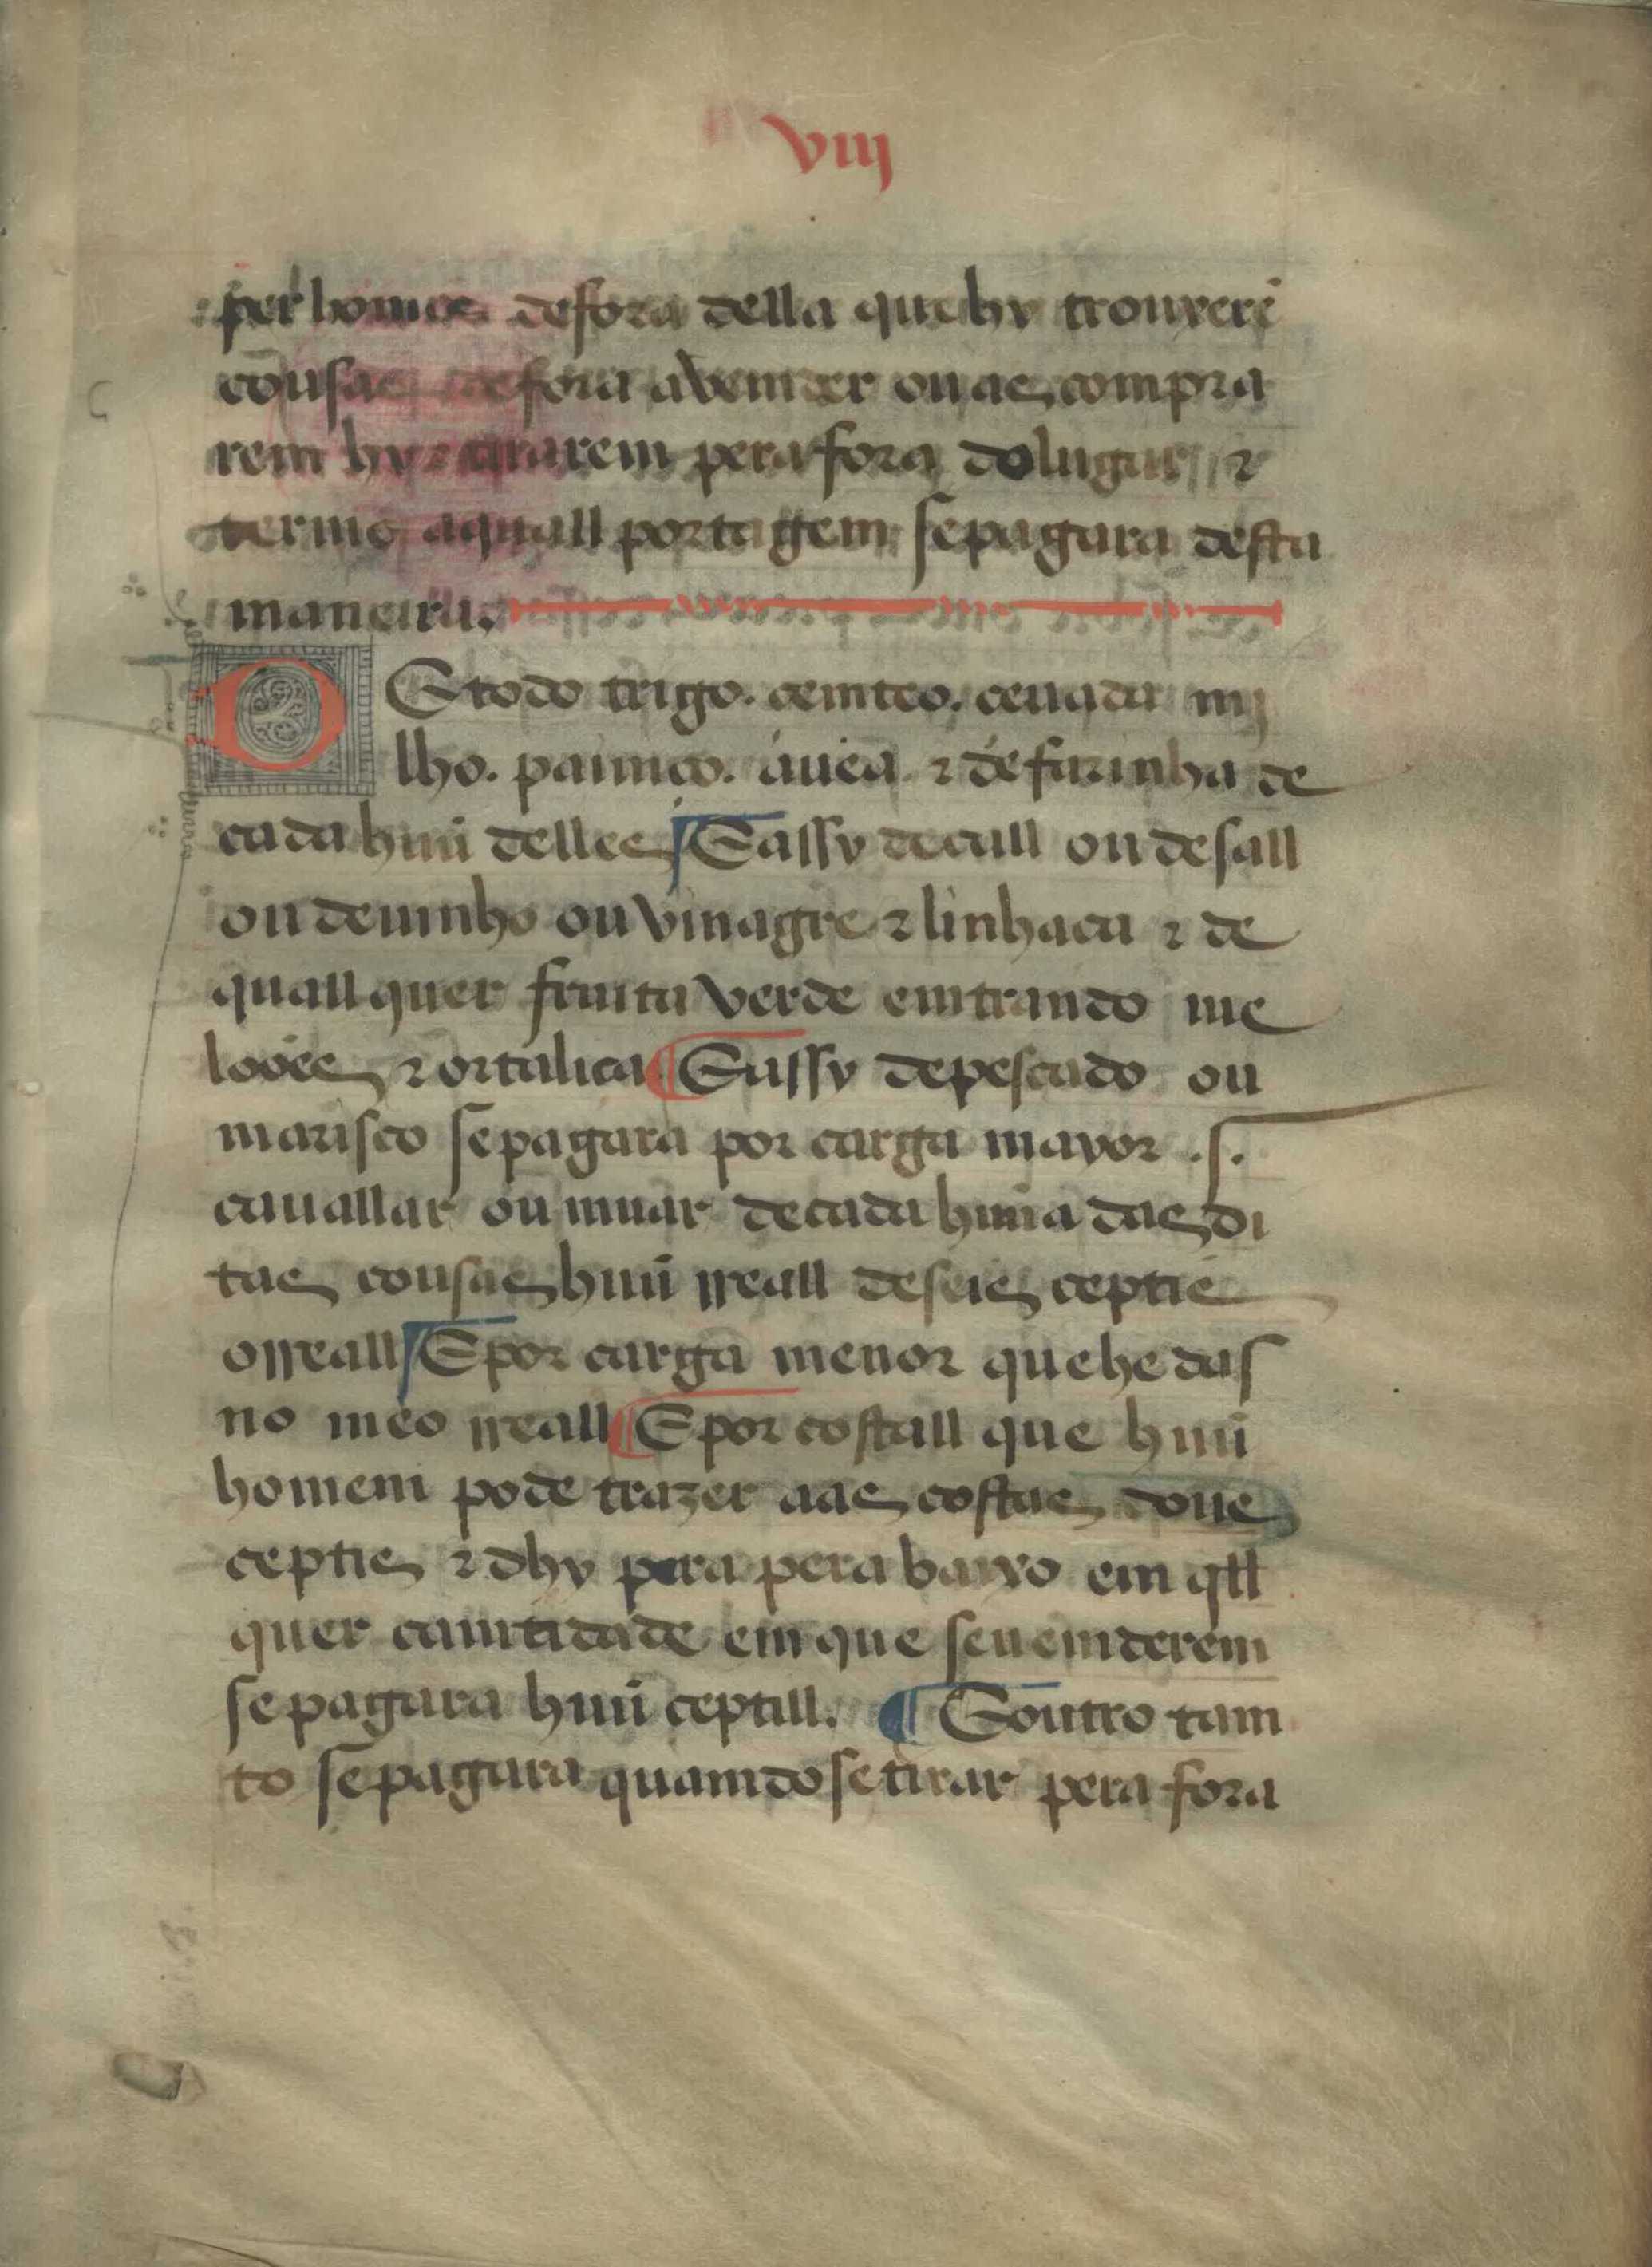 viij
per homẽs defora della que hy trouxerẽ
cousas defora a vemder ou as compra
rem hy ⁊ tirarem pera fora do lugar ⁊
termo a quall portagem se pagara desta
maneira.
DE todo trigo. cemteo. ceuada mj
lho. painço. auea ⁊ de farinha de
cada huũ delles ¶ E assy de call ou de sall
ou de uinho ou vinagre ⁊ linhaça ⁊ de
quall quer fruita verde emtrando me
looes ⁊ ortaliça ¶ E assy de pescado ou
marisco se pagara por carga mayor .s.
cauallar ou muar de cada huũa das di
tas cousas huũ rreall de seis ceptis
o rreall ¶ E por carga menor que he das
no meo rreall ¶ E por costall que huũ
homem pode trazer aas costas dous
ceptis ⁊ dhy pera pera baixo em qll
quer camtidade em que se uemderem
se pagara huũ ceptill. ¶ E outro tam
to se pagara quamdo se tirar pera fora